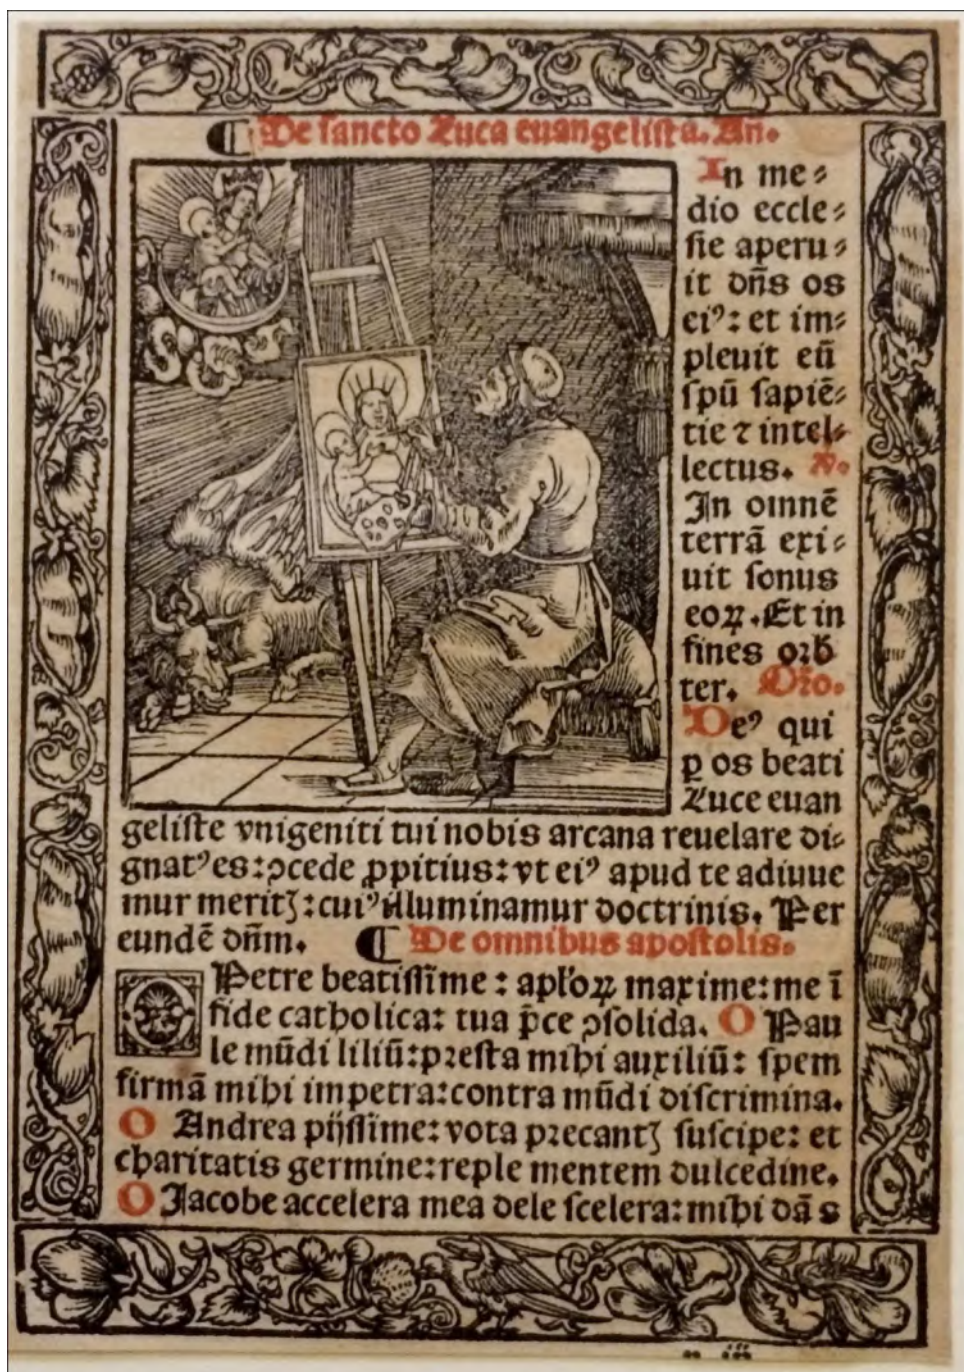 ¶ De sancto Luca euangelista. Añ.
In me⸗
dio eccle⸗
sie aperu⸗
it dñs os
eiꝰ: et im⸗
pleuit eū
spū sapiē⸗
tie ⁊ intel⸗
lectus.
In omnē
terrā exi⸗
uit sonus
eoꝝ. Et in
fines orb̄
ter. Oro.
Deꝰ qui
ꝑ os beati
Luce euan
geliste vnigeniti tui nobis arcana reuelare di⸗
gnatꝰ es: ꝯcede ꝓpitius: vt eiꝰ apud te adiuue
mur meritꝫ: cuiꝰ illuminamur doctrinis. Per
eundē dñm. ¶ De omnibus apostolis.
O Petre beatissime: apl'oꝝ maxime: me ī
fide catholica: tua p̄ce ꝯsolida. O Pau
le mūdi liliū: presta mihi auxiliū: spem
firmā mihi impetra: contra mūdi discrimina.
O Andrea pijssime: vota precantꝫ suscipe: et
charitatis germine: reple mentem dulcedine.
O Jacobe accelera mea dele scelera: mihi dā s